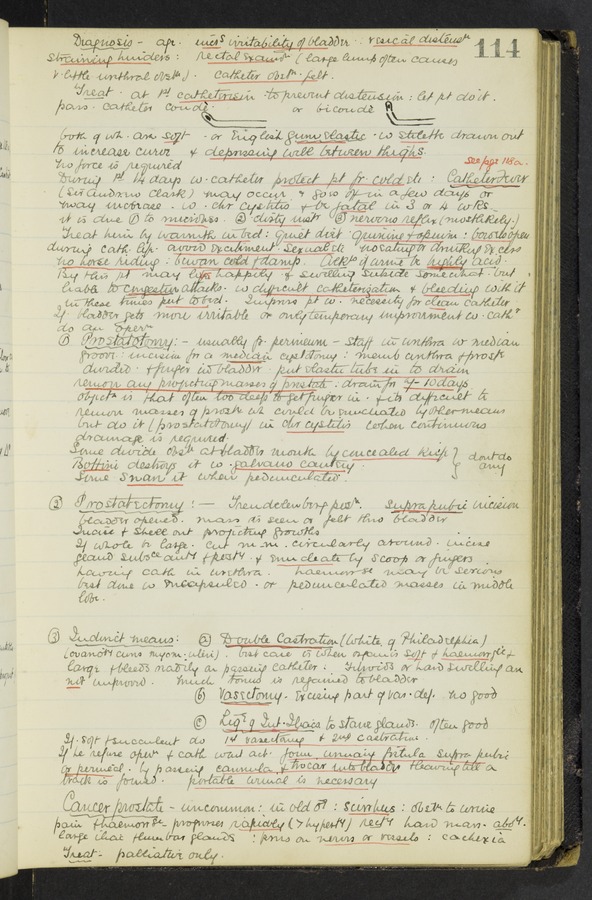 114
Diagnosis - age. incrs irritability of bladder : vesical distensn
straining hinders : rectal examn (large lump often causes
v. little urethral obstn). catheter obstn felt.
Treat. at 1st catheterism to prevent distension : let pt do it.
pass. catheter coudé or bicoudé
both of wh. are soft - or English gum elastic. w stilette drawn out
to increase curve & depressing well between thighs.
No force is required see page 118a.
During 1st 14 days w. catheter protect pt fr cold etc : Catheter Fever
(Sir Andrew Clark) may occur & go off in a few days or
may increase. w. chr cystitis & be fatal in 3 or 4 wks.
it is due ① to ② dirty insts ③ nervous reflex (most likely.)
Treat him by warmth in bed : quiet diet quinine & opium : bowels open
during cath. life. avoid excitement sexual etc no eating or drinking excess
no horse riding : beware cold & damp. of urine be highly acid.
By this pt may live happily & swelling subside somewhat. but
liable to congestion attacks. w difficult catheterization & bleeding with it
in these times put to bed. Impress pt w. necessity for clean catheter
If bladder gets more irritable or only temporary improvement w. cathr
do an opern
① Prostatotomy : - usually fr perineum - staff in urethra w median
groove : incision for a median cystotomy : memb urethra & prost
divided. & finger in bladder. put elastic tube in to drain
remove any projecting masses of prostate. drain for 7-10 days
objectn is that often too deep to get finger in. & its difficult to
remove masses of prost wh could be enucleated by other means
but do it (prostatotomy) in chr cystitis when continuous
drainage is required.
Some divide obstn at bladder mouth by concealed knife } dont do
Bottini destroys it w. galvano cautery. } any
Some snare it when pedunculated.
② Prostatectomy : — Trendelenberg posn. Suprapubic incision
bladder opened. mass is seen or felt thro bladder
Incise & shell out projecting growths
If whole is large. cut m.m. circularly around. incise
gland subsce antr & postr & enucleate by scoop or fingers
having cath in urethra. haemorrge may be serious
best done in encapsuled. or pedunculated masses in middle
lobe.
③ Indirect means : ⓐ Double Castration (White of Philadelphia)
(ovariotr cures myom. uteri). best case is when organ is soft & haemorrgic &
large & bleeds readily on passing catheter : Fibroids or hard swelling are
not improved. much tonus is regained to bladder
ⓑ Vasectomy. Excising part of vas. def. no good
ⓒ Ligre of Int. Iliacs to starve glands. often good
If soft & succulent do 1st vasectomy & 2nd castration.
If he refuse opern & cath wont act. form urinary fistula supra pubic
or perineal. by passing cannula & trocar into bladder & leaving till a
track is formed. portable urinal is necessary
Cancer prostate - uncommon : in old ♂ : scirrhus : obstn to urine
pain & haemorrge progresses rapidly (> hypertr) rectr hard mass. abdr.
large iliac & lumbar glands : press on nerves or vessels : cachexia
Treat - palliative only.